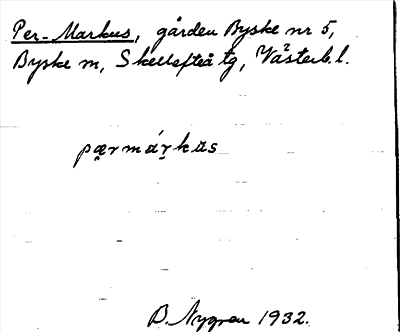 Per-Markus, gården Byske nr 5,
Byske m, Skellefteå tg, Västerb. l.
pærmárkus
B. Nygren 1932.